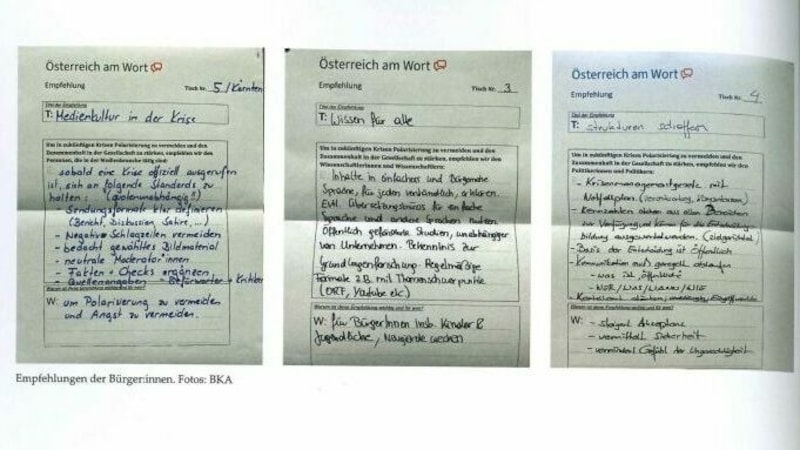 Österreich am Wort
Empfehlung
Tisch Nr. 5 / Kärnten
Titel der Empfehlung
T: Medienkultur in der Krise
Um in zukünftigen Krisen Polarisierung zu vermeiden und den
Zusammenhalt in der Gesellschaft zu stärken, empfehlen wir den
Personen, die in der Medienbranche tätig sind:
sobald eine Krise offiziell ausgerufen
ist, sich an folgende Standards zu
halten:
- Sendungsformate klar definieren
(Bericht, Diskussion, Satire, ...)
- Negative Schlagzeilen vermeiden
- bedacht gewähltes Bildmaterial
- neutrale Moderator*innen
- Fakten + Checks ergänzen
- Quellenangaben - Befürworter + Kritiker
Warum ist diese Empfehlung wichtig und für wen?
W: um Polarisierung zu vermeiden
und Angst zu vermeiden.
Österreich am Wort
Empfehlung
Tisch Nr. 3
Titel der Empfehlung
T: Wissen für alle
Um in zukünftigen Krisen Polarisierung zu vermeiden und den
Zusammenhalt in der Gesellschaft zu stärken, empfehlen wir den
Wissenschafterinnen und Wissenschaftern:
Inhalte in einfacher und
Sprache, für jeden verständlich, erklären.
Evtl. Übersetzungsbüros für einfache
Sprache und andere Sprachen nutzen
Öffentlich geförderte Studien, unabhängig
von Unternehmen. Bekenntnis zur
Grundlagenforschung. Regelmäßige
Formate z.B. mit Themenschwerpunkte
(ORF, Youtube etc)
Warum ist diese Empfehlung wichtig und für wen?
W: für BürgerInnen insb. Kinder &
Jugendliche, Neugierde wecken
Österreich am Wort
Empfehlung
Tisch Nr. 4
Titel der Empfehlung
T: Strukturen schaffen
Um in zukünftigen Krisen Polarisierung zu vermeiden und den
Zusammenhalt in der Gesellschaft zu stärken, empfehlen wir den
Politikerinnen und Politikern:
- Krisenmanagementgesetze mit
Notfallplan
- Kennzahlen aus allen Bereichen
zur Verfügung und für die Entscheidungs-
bildung ausgewertet werden.
- Basis der Entscheidung ist Öffentlich
- Kommunikation muß geregelt ablaufen
- was ist
- WER / WAS / WANN / WIE
Warum ist diese Empfehlung wichtig und für wen?
W: - steigert Akzeptanz
- vermittelt Sicherheit
- vermindert Gefühl der Ungerechtigkeit
Empfehlungen der Bürger:innen. Fotos: BKA